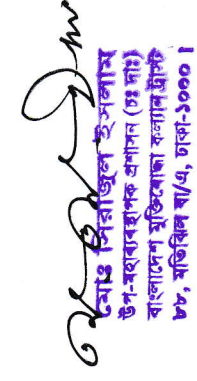 মোঃ সিরাজুল ইসলাম
উপ-মহাব্যবস্থাপক প্রশাসন (চঃ দাঃ)
বাংলাদেশ মুক্তিযোদ্ধা কল্যান ট্রাস্ট
৮৮, মতিঝিল বা/এ, ঢাকা-১০০০।